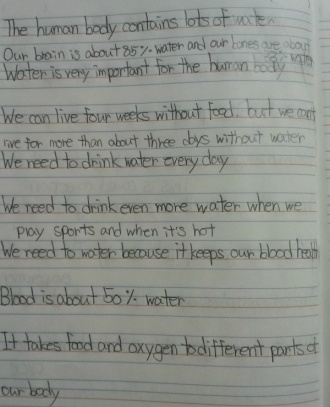 The human body contains lots of water
Our brain is about 85% water and our bones are about
water
Water is very important for the human body
We can live four weeks without food, but we can't
live for more than about three days without water
We need to drink water every day
We need to drink even more water when we
play sports and when it's hot
We need to water because it keeps our blood health
Blood is about 50% water
It takes food and oxygen to different parts of
our body